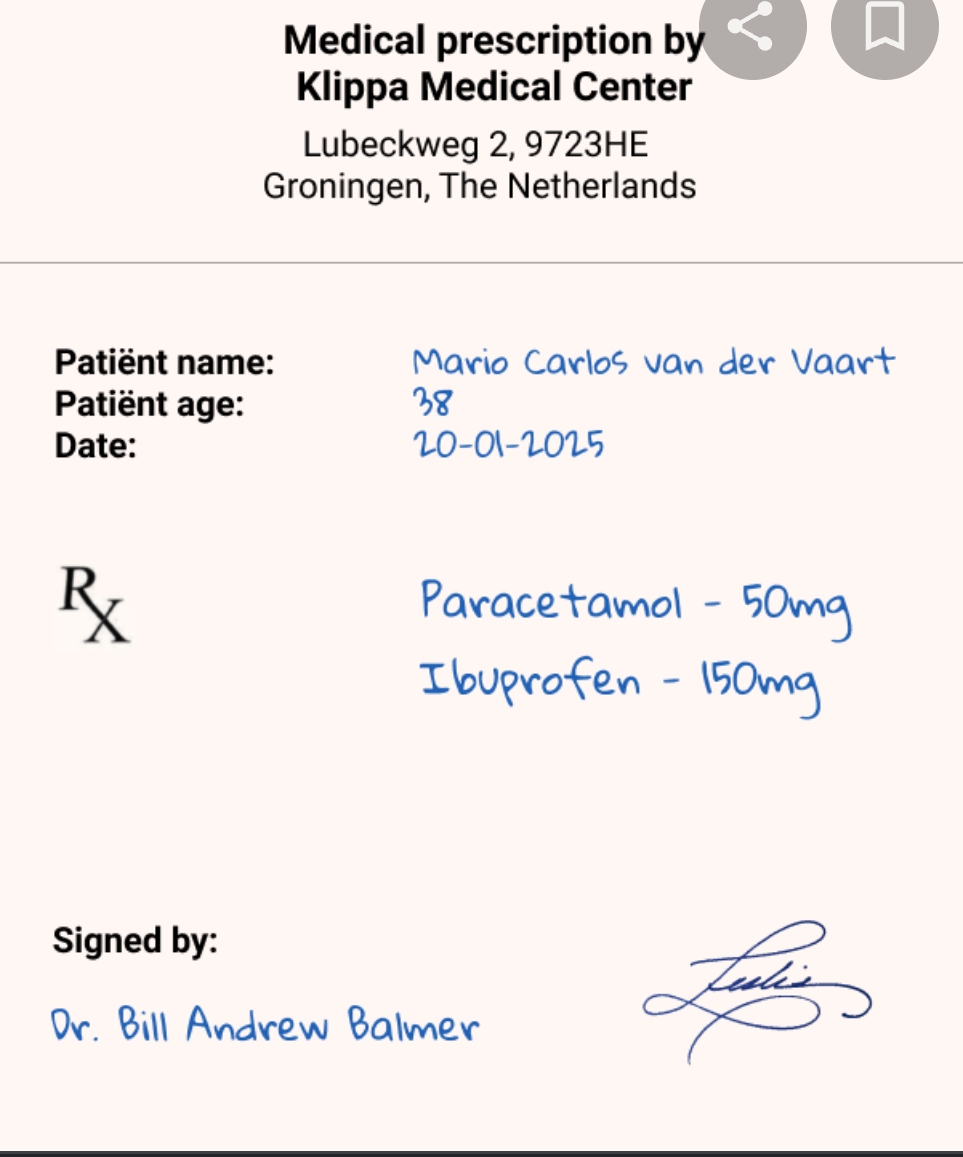 Medical prescription by
Klippa Medical Center
Lubeckweg 2, 9723HE
Groningen, The Netherlands
Patiënt name: Mario Carlos van der Vaart
Patiënt age: 38
Date: 20-01-2025
Rx
Paracetamol - 50mg
Ibuprofen - 150mg
Signed by:
Dr. Bill Andrew Balmer
Leslie